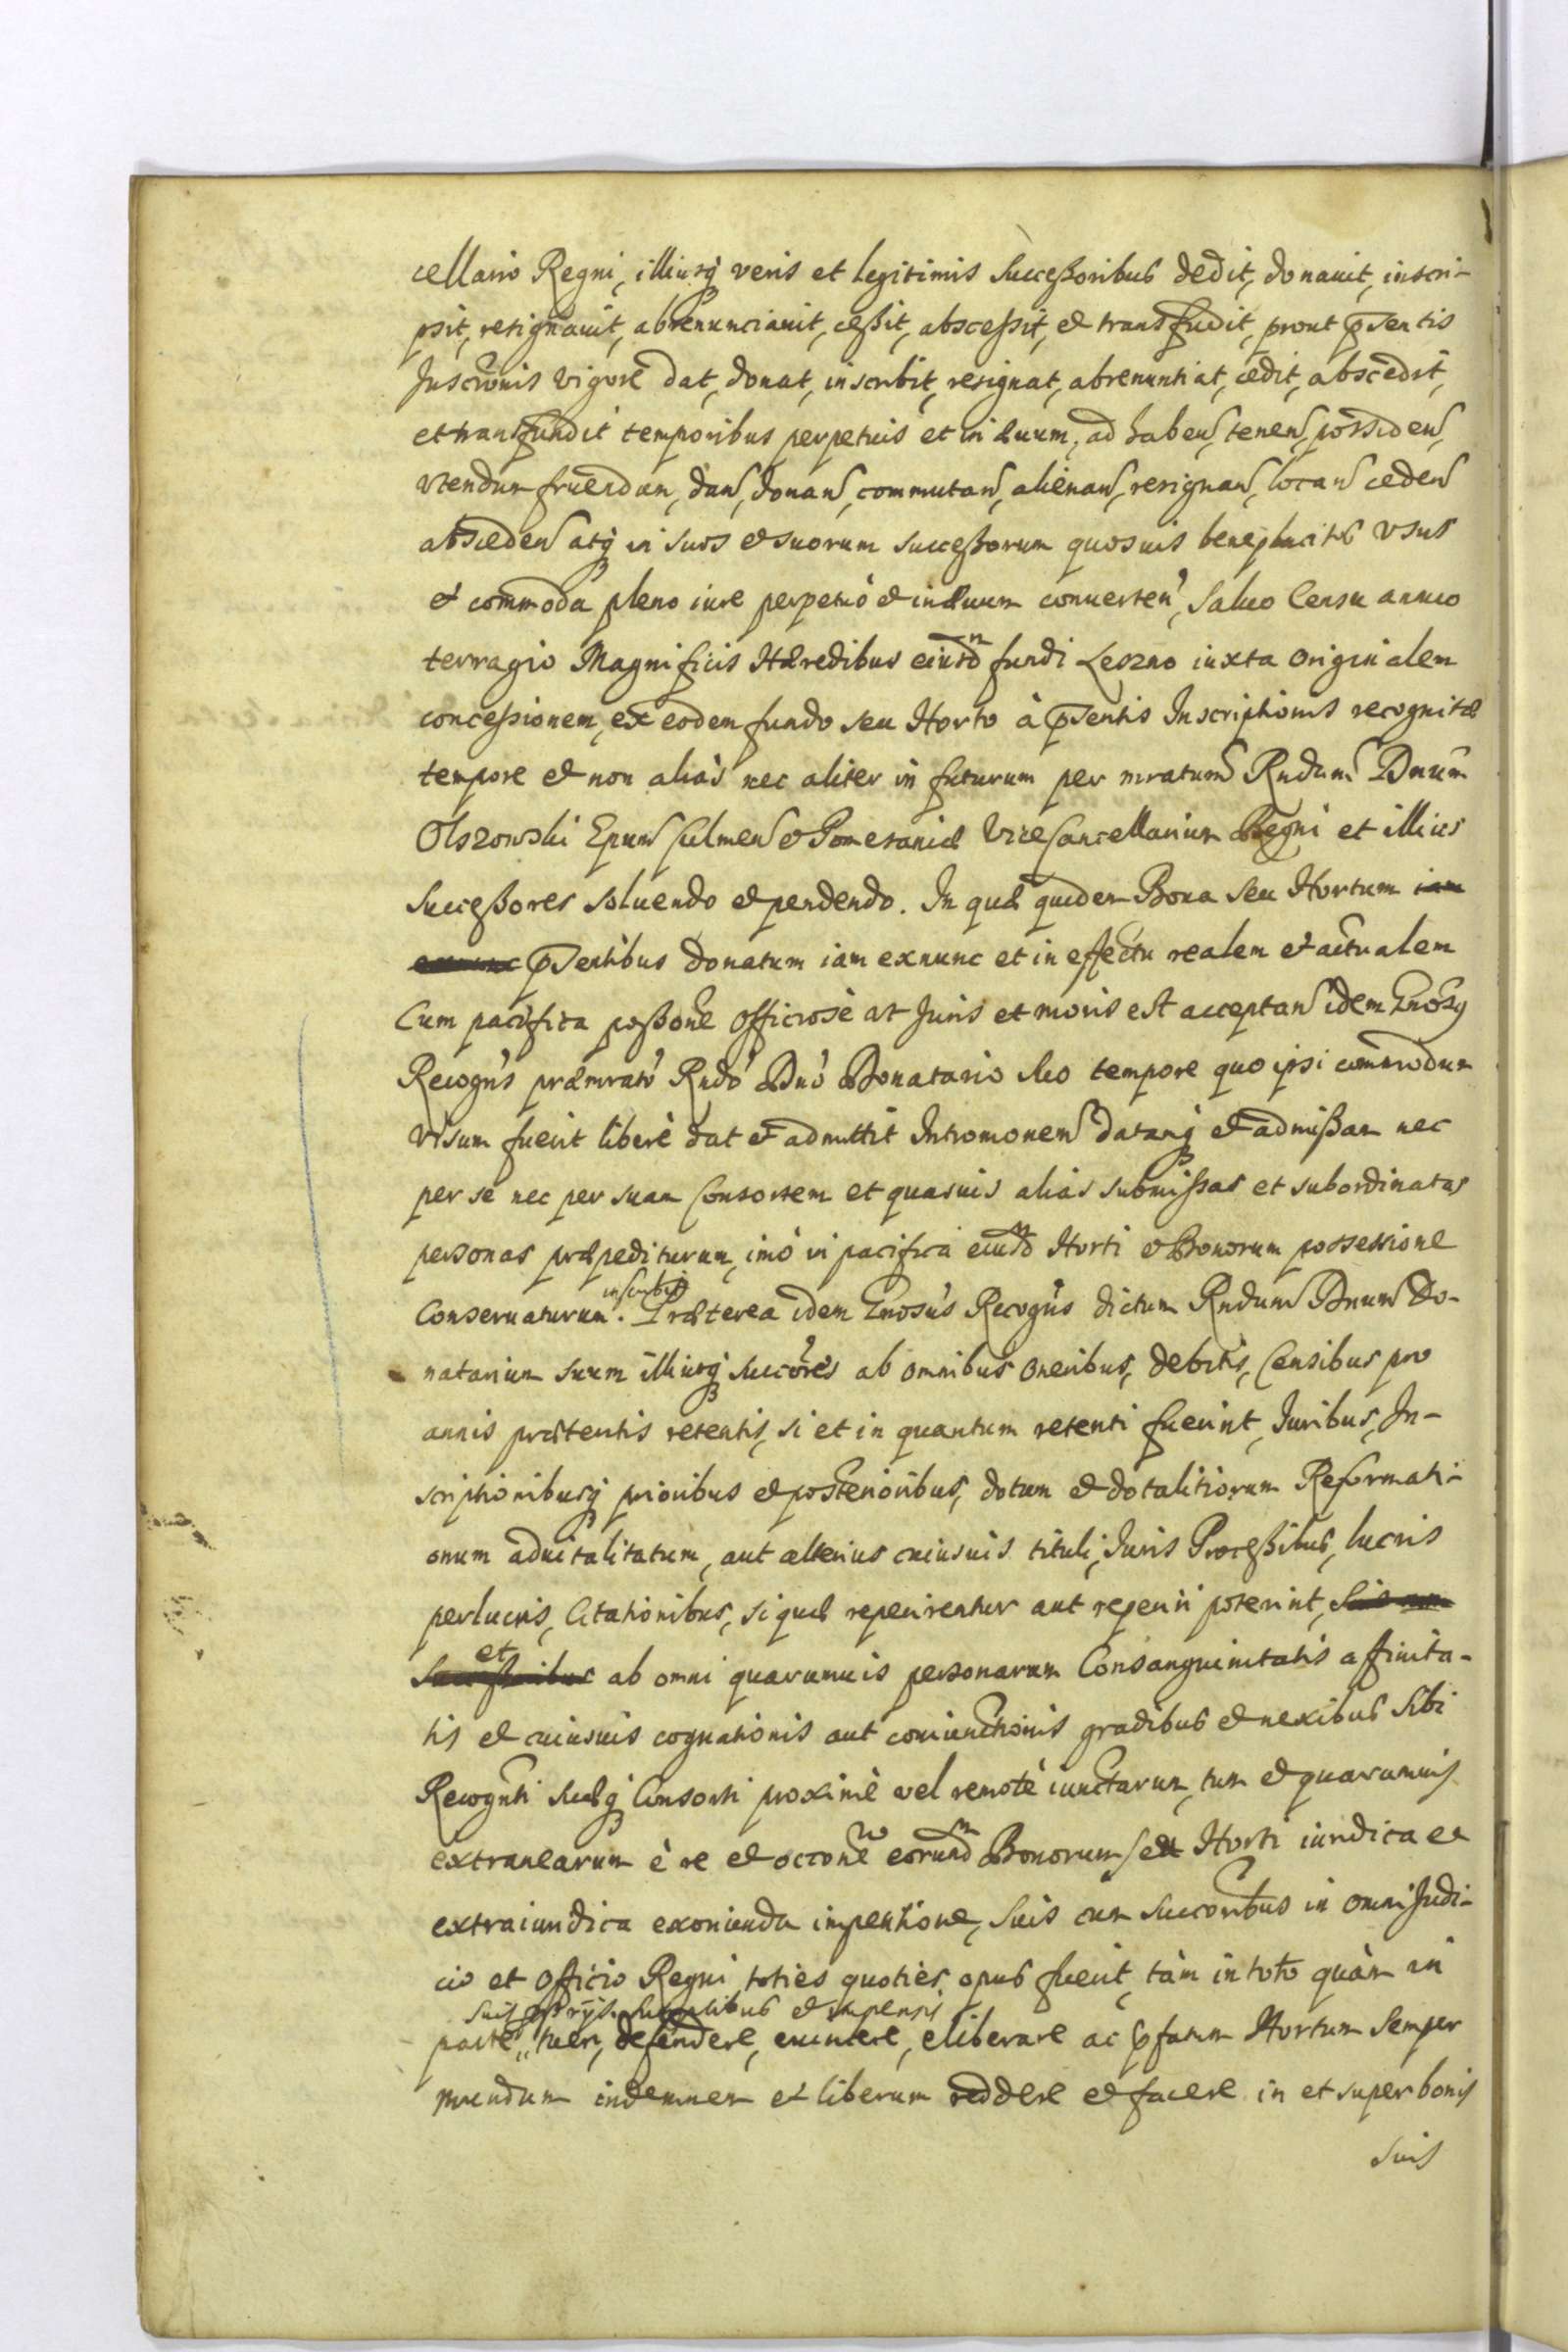 cellario Regni, illiusq veris et legitimis Successoribus dedit, donauit, inscri-
psit, resignauit, abrenunciauit, cessit, abscessit, et transfudit, prout pñsentis
Inscrõnis vigore dat, donat, inscribit, resignat, abrenuntiat, cedit, abscedit,
et transfundit temporibus perpetuis et in æuum, ad haben, tenen, possiden,
vtendum fruendum, dan, donan, commutan, alienan, resignan, locan ceden
absceden atq in suos et suorum successorum quosuis beneplacitos vsus
et commoda pleno iure perpetuò et in æuum conuerten, Saluo Censu annuo
terragio Magnificis Hæredibus eiusd fundi Leszno iuxta originalem
concessionem, ex eodem fundo seu Horto à pñsentis Inscriptionis recognitæ
tempore et non aliàs nec aliter in futurum per mratum Rndum Dnum
Olszowski Epum Culmen et Pomeraniæ ViceCancellarium Regni et illius
Successores soluendo et pendendo. In quæ quidem Bona seu Hortum iam
exnunc pñsentibus donatum iam exnunc et in effectu realem et actualem
Cum pacifica possone officiosè vt Juris et moris est acceptan idem Gnosus
Recogñs præmrato Rndo Dno Donatario suo tempore quo ipsi commodum
visum fuerit liberè dat et admittit Intromonem datamq et admissam nec
per se nec per suam Consortem et quasuis alias submissas et subordinatas
personas præpediturum, imò in pacifica eiusd Horti et Bonorum possessione
Conseruaturum inscribit. Præterea idem Gnosus Recogñs dictum Rndum Dnum Do-
natarium suum illiusq succores ab omnibus oneribus, debitis, Censibus pro
annis præteritis retentis, si et in quantum retenti fuerint, Iuribus, In-
scriptionibusq prioribus et posterioribus, dotum et dotalitiorum Reformati-
onum aduitalitatum, aut alterius cuiusuis tituli, Iuris Processibus, lucris
perlucris, Citationibus, si quæ reperirentur aut reperiri poterint,
et ab omni quarumuis personarum Consanguinitatis affinita-
tis et cuiusuis cognationis aut coniunctionis gradibus et nexibus sibi
Recognti suæq Consorti proximè vel remotè iunctarum, tum et quarumuis
extranearum è re et occone eorund Bonorum seu Horti iuridica et
extraiuridica exorienda impetitione, suis cum succoribus in omni Judi-
cio et Officio Regni toties quoties opus fuerit, tàm in toto quàm in
suis proprijs sumptibus et impensis
parte, tueri, defendere, euincere, eliberare ac pfatum Hortum semper
mundum indemnem et liberum reddere et facere in et super bonis
suis